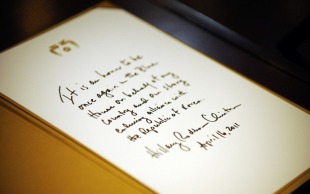 It is an honor to be
once again in the Blue
House on behalf of my
country and our strong
enduring alliance with
the Republic of Korea.
Hillary Rodham Clinton
April 16, 2011